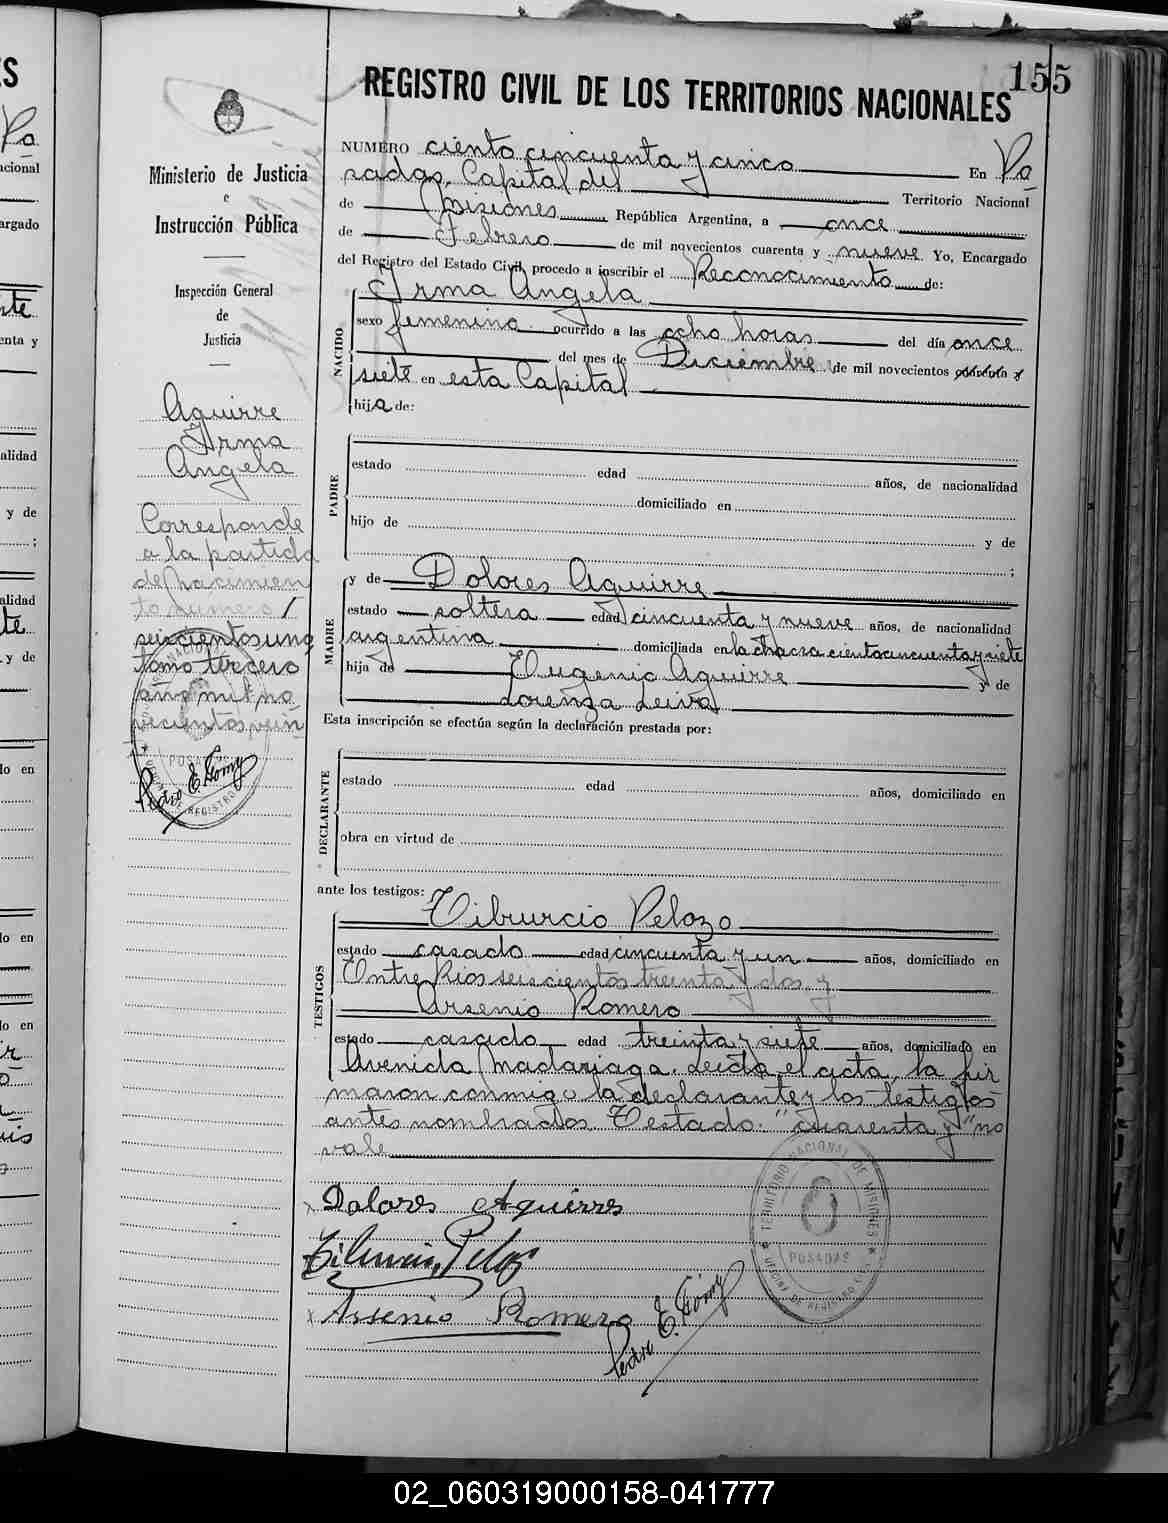 155
REGISTRO CIVIL DE LOS TERRITORIOS NACIONALES
Ministerio de Justicia
e
Instrucción Pública
Inspección General
de
Justicia
Aguirre
Irma
Angela
Corresponde
a la partida
de nacimien
to número
seiscientos uno
tomo tercero
año mil no
vecientos vein
POSADAS
Pedro E. Gomy
NUMERO ciento cincuenta y cinco En Po
sadas, Capital del Territorio Nacional
de Misiones República Argentina, a once
de Febrero de mil novecientos cuarenta y nueve Yo, Encargado
del Registro del Estado Civil, procedo a inscribir el Reconocimiento de:
Irma Angela
NACIDO
sexo femenino ocurrido a las ocho horas del día once
del mes de Diciembre de mil novecientos cuarenta y
siete en esta Capital
hija de:
PADRE
estado edad años, de nacionalidad
domiciliado en
hijo de y de
;
MADRE
y de Dolores Aguirre
estado soltera edad cincuenta y nueve años, de nacionalidad
argentina domiciliada en la chacra ciento cincuenta y siete
hija de Eugenio Aguirre y de
Lorenza Leiva
Esta inscripción se efectúa según la declaración prestada por:
DECLARANTE
estado edad años, domiciliado en
obra en virtud de
ante los testigos:
TESTIGOS
Tiburcio Pelozo
estado casado edad cincuenta y un años, domiciliado en
Entre Rios seiscientos treinta y dos y
Arsenio Romero
estado casado edad treinta y siete años, domiciliado en
Avenida Madariaga. Leida el acta, la fir
maron conmigo la declarante y los testigos
antes nombrados. Testado: "cuarenta y" no
vale
TERRITORIO NACIONAL DE MISIONES
POSADAS
OFICINA DE REGISTRO CIVIL
Dolores Aguirres
Arsenio Romero
Pedro E. Gomy
02_060319000158-041777